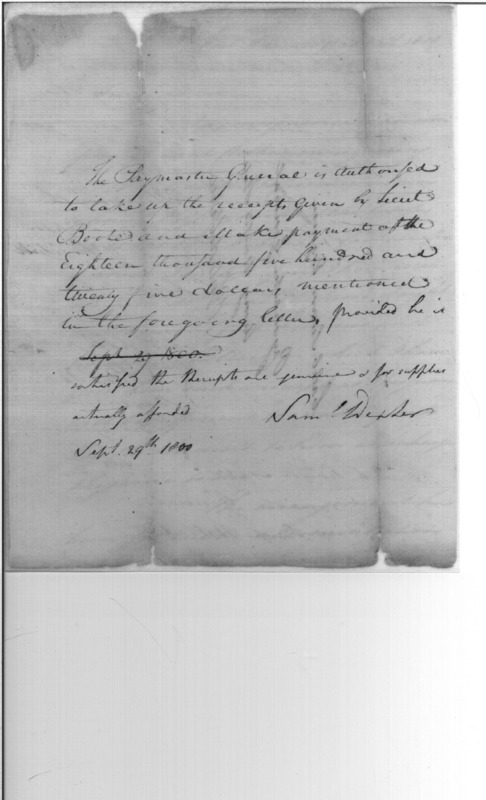 The Paymaster General is authorised
to take up the receipts given by Lieut
Boote and make payment of the
Eighteen thousand five hundred and
twenty five dollars, mentioned
in the foregoing letter, provided he is
Sept 29 1800.
satisfied the Receipts are genuine & for supplies
actually afforded
Saml Dexter
Sept. 29th 1800